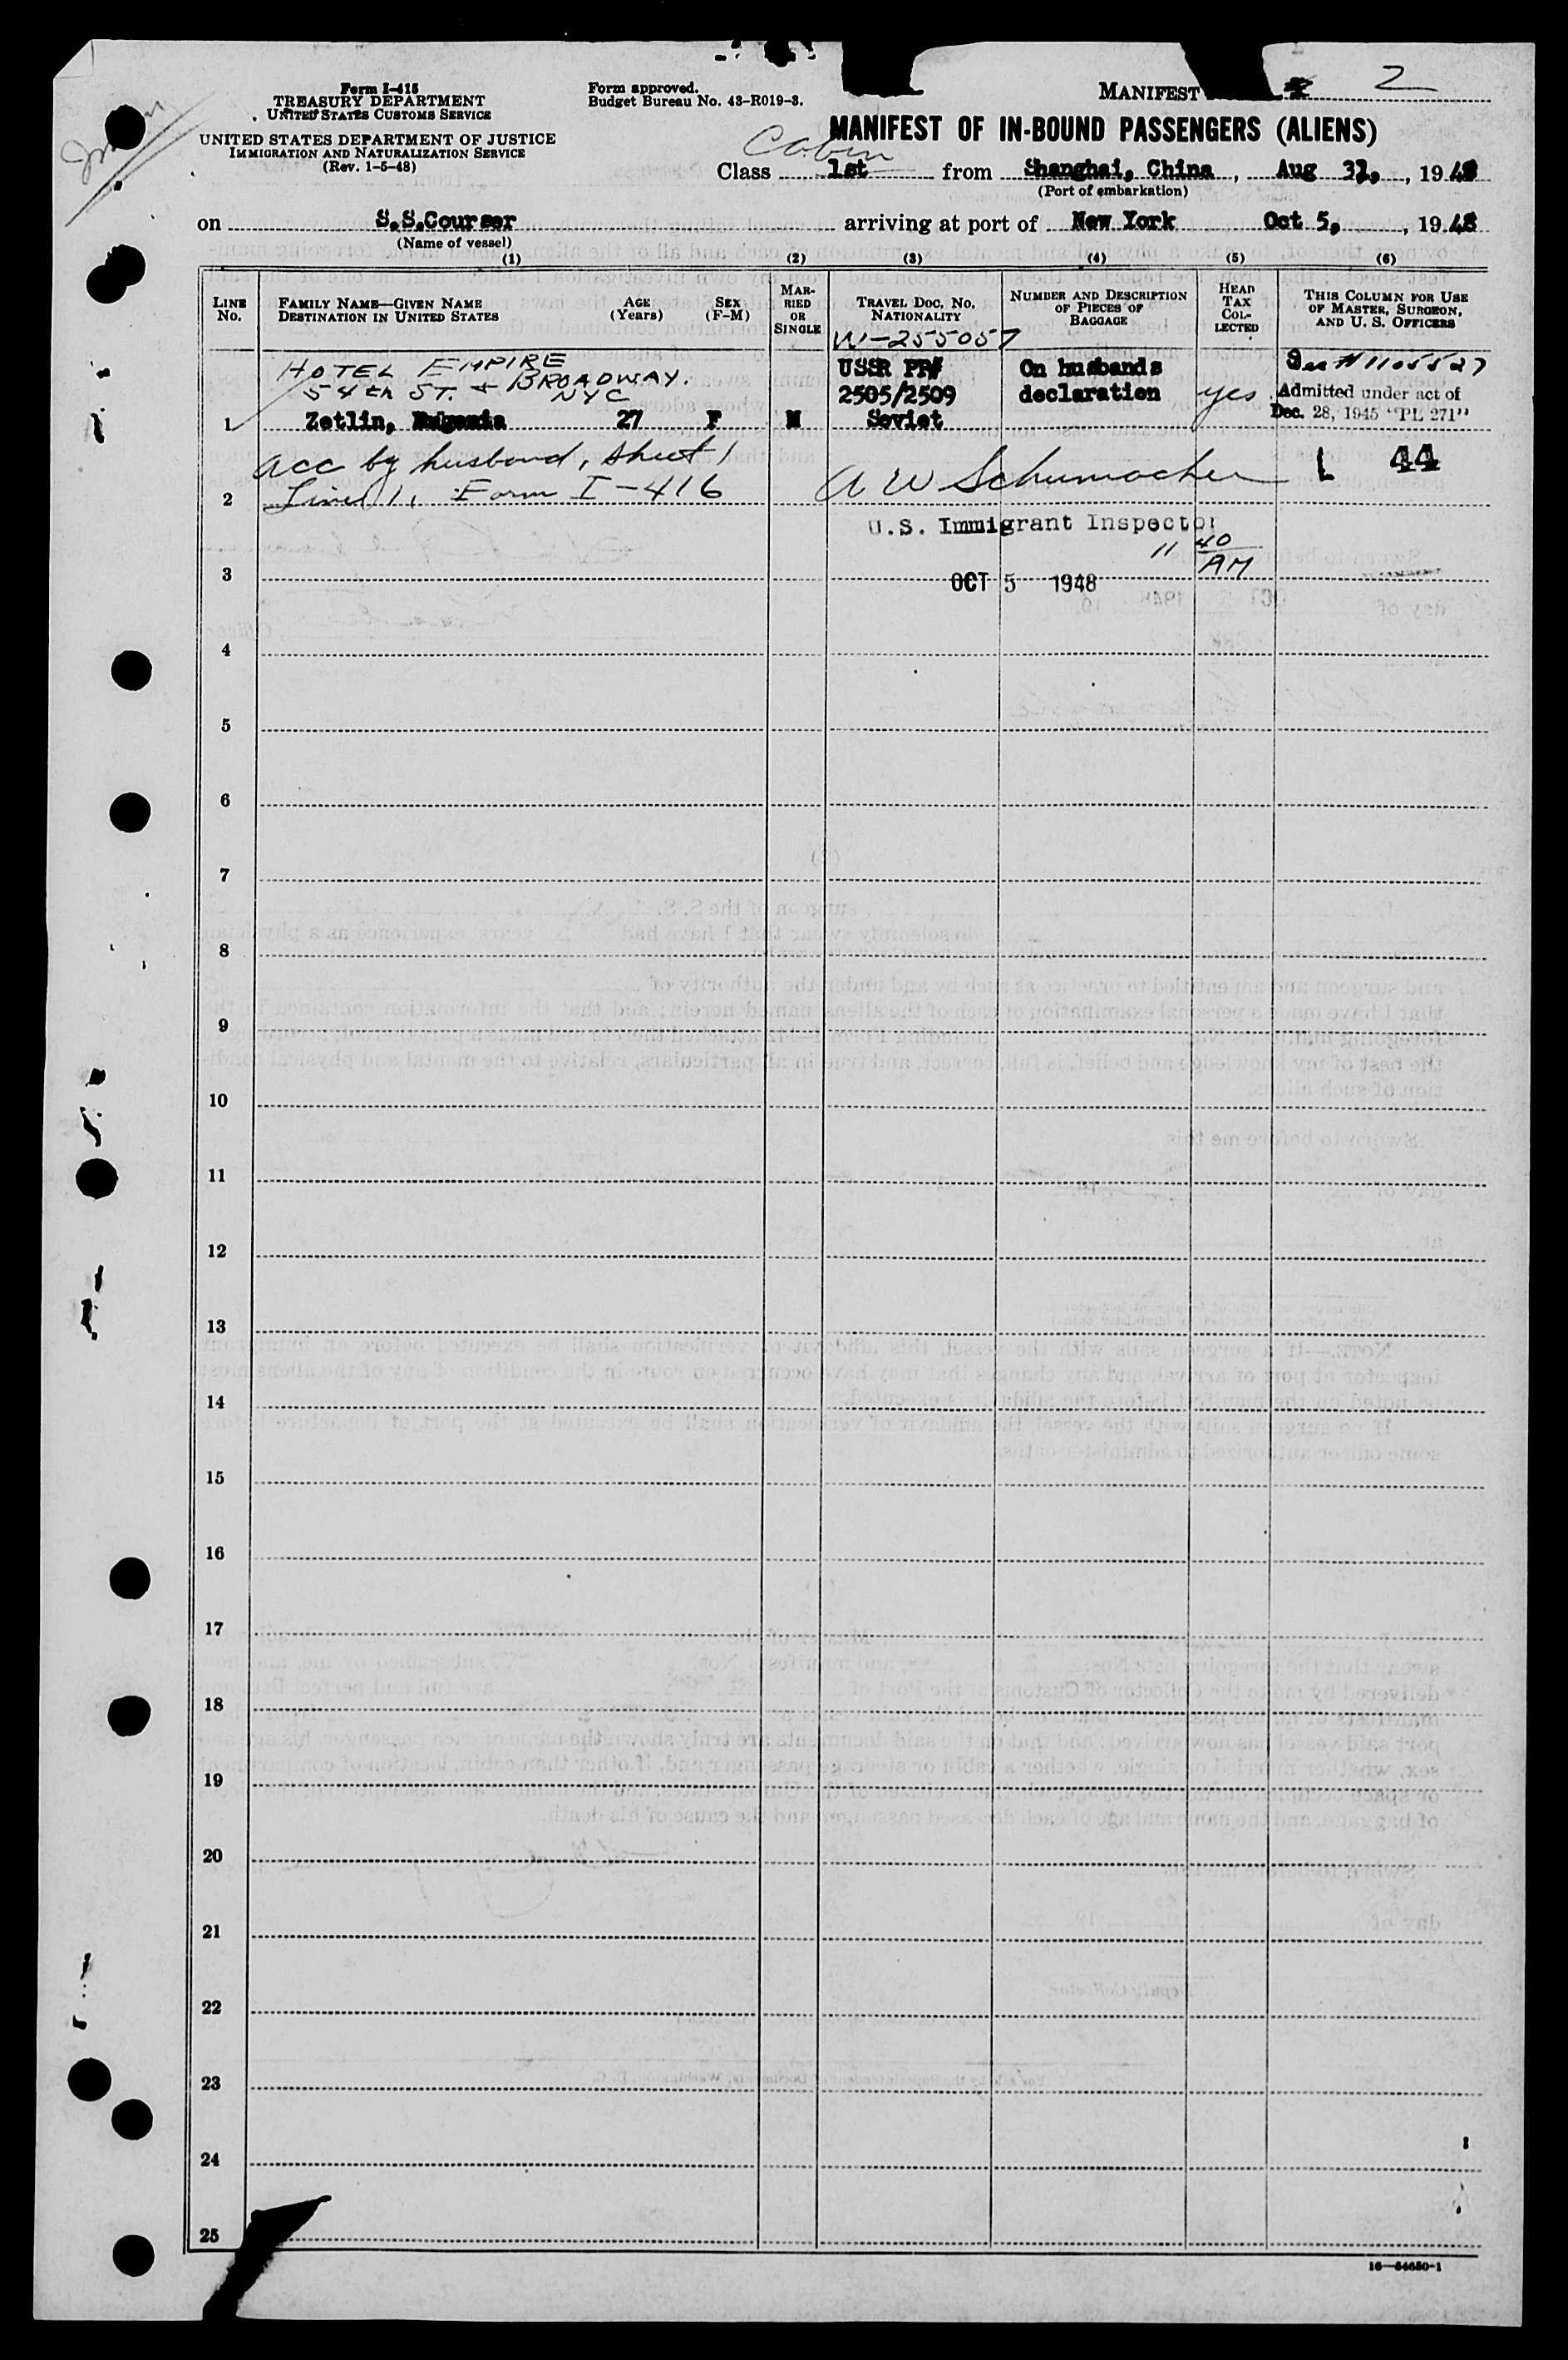 Form I-415
TREASURY DEPARTMENT
UNITED STATES CUSTOMS SERVICE
UNITED STATES DEPARTMENT OF JUSTICE
IMMIGRATION AND NATURALIZATION SERVICE
(Rev. 1-5-48)
Form approved.
Budget Bureau No. 43-R019-3.
MANIFEST 2
MANIFEST OF IN-BOUND PASSENGERS (ALIENS)
Cabin
Class 1st from Shanghai, China, Aug 31, 1948
(Port of embarkation)
on S.S.Courser arriving at port of New York Oct 5, 1948
(Name of vessel)
(1) (2) (3) (4) (5) (6)
LINE No. FAMILY NAME—GIVEN NAME DESTINATION IN UNITED STATES AGE (Years) SEX (F-M) MARRIED OR SINGLE TRAVEL DOC. NO. NATIONALITY NUMBER AND DESCRIPTION OF PIECES OF BAGGAGE HEAD TAX COLLECTED THIS COLUMN FOR USE OF MASTER, SURGEON, AND U. S. OFFICERS
W-255057
HOTEL EMPIRE USSR PP# On husbands #1105527
54th ST. + BROADWAY. NYC 2505/2509 declaration yes Admitted under act of
1 Zetlin, 27 F M Soviet Dec. 28, 1945 "PL 271"
acc by husband, sheet 1 L 44
2 Line 1, Form I-416 A W Schumacher
U.S. Immigrant Inspector
11 40 AM
3 OCT 5 1948
4
5
6
7
8
9
10
11
12
13
14
15
16
17
18
19
20
21
22
23
24
25
16—54650-1